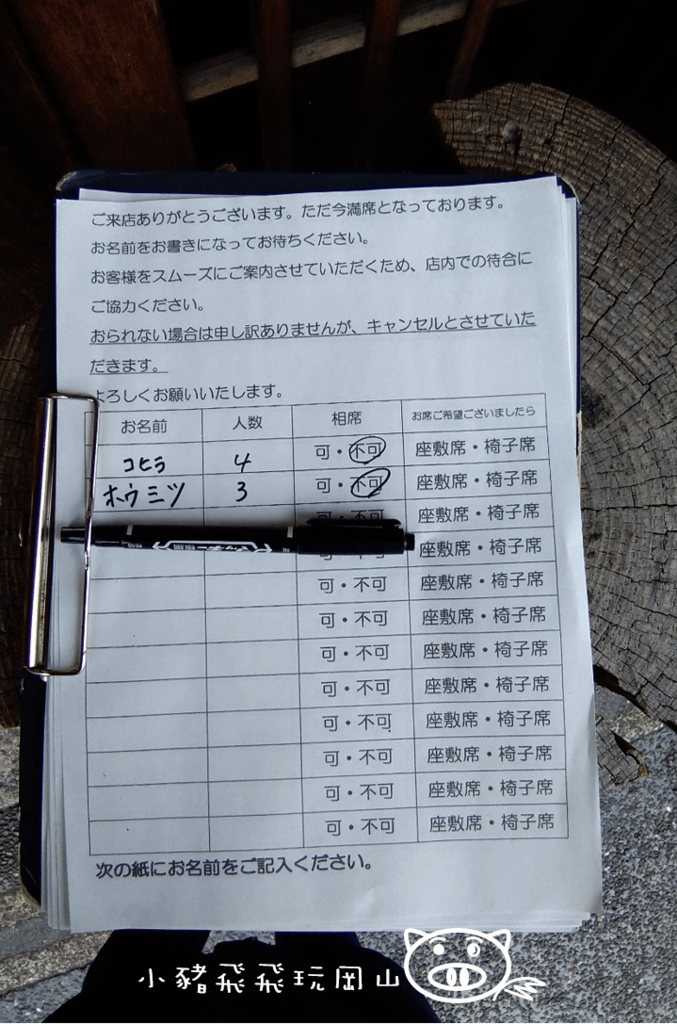 ご来店ありがとうございます。ただ今満席となっております。
お名前をお書きになってお待ちください。
お客様をスムーズにご案内させていただくため、店内での待合に
ご協力ください。
おられない場合は申し訳ありませんが、キャンセルとさせていた
だきます。
よろしくお願いいたします。
お名前 人数 相席 お席ご希望ございましたら
コヒラ 4 可・不可 座敷席・椅子席
ホウミツ 3 可・不可 座敷席・椅子席
可・不可 座敷席・椅子席
座敷席・椅子席
可・不可 座敷席・椅子席
可・不可 座敷席・椅子席
可・不可 座敷席・椅子席
可・不可 座敷席・椅子席
可・不可 座敷席・椅子席
可・不可 座敷席・椅子席
可・不可 座敷席・椅子席
可・不可 座敷席・椅子席
次の紙にお名前をご記入ください。
小豬飛飛玩岡山